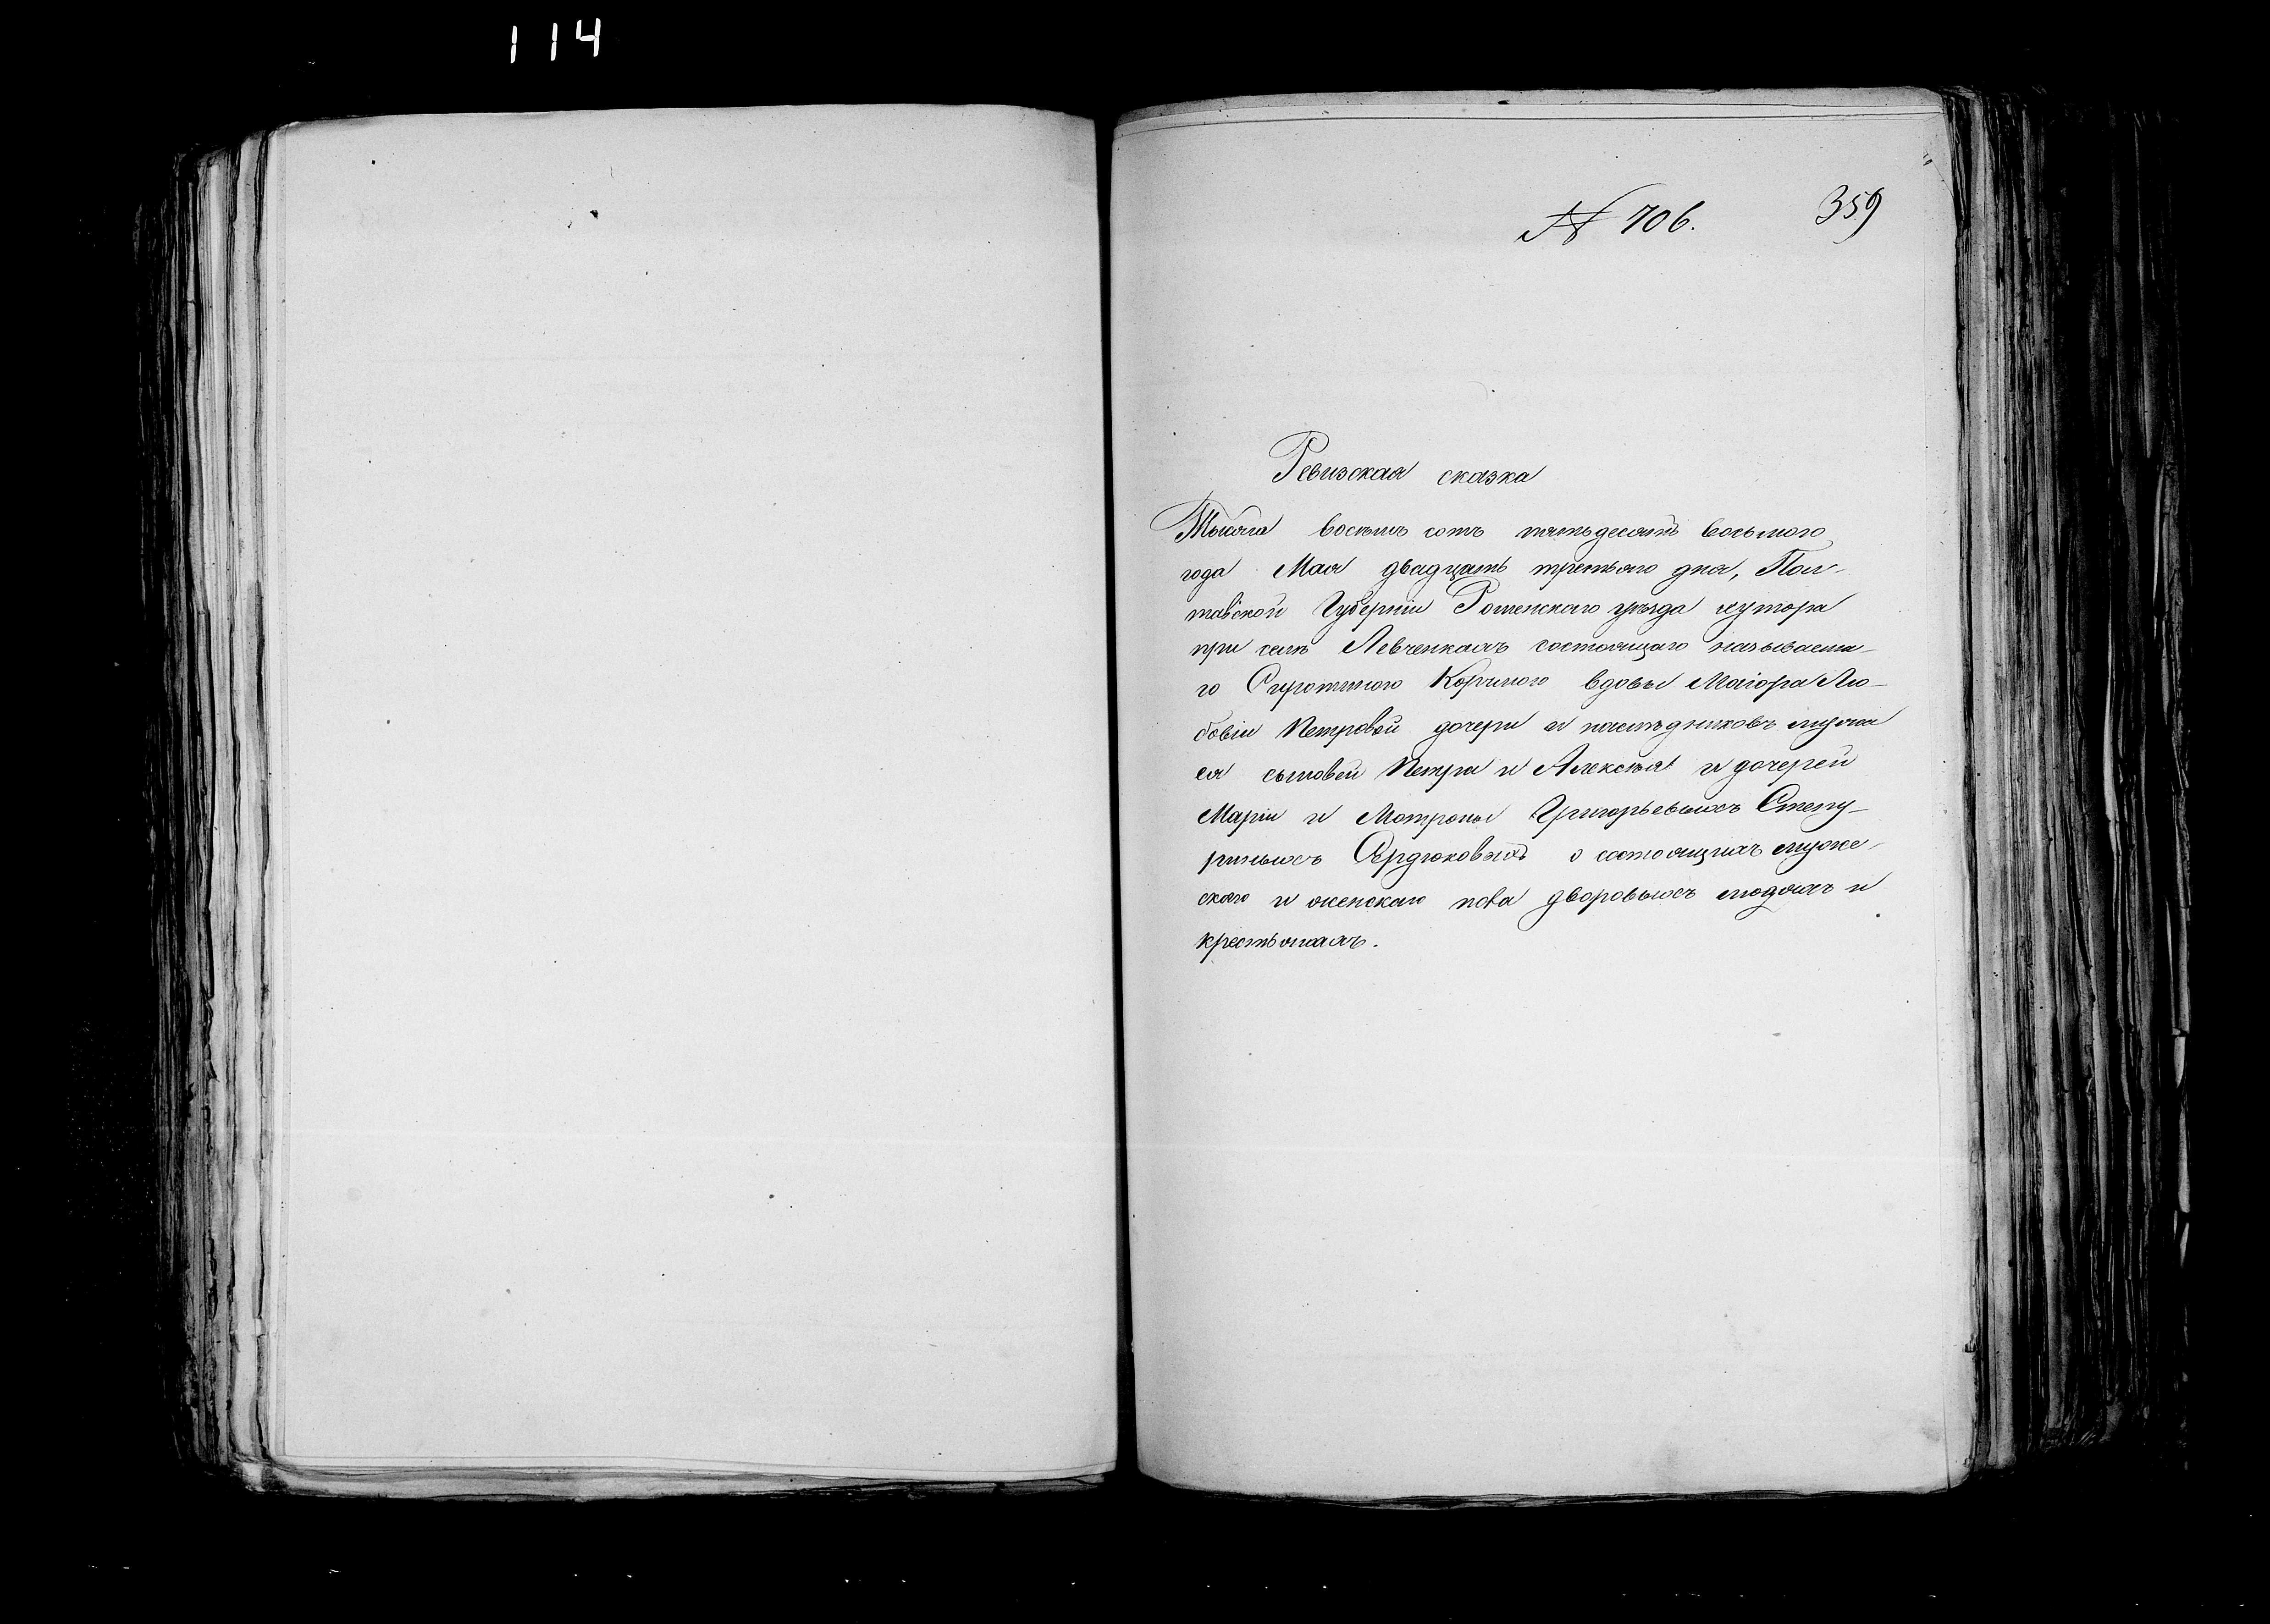 114
№ 706. 359
Ревизская сказка
Тысяча восемь сотъ пятьдесятъ восьмого
года Мая двадцать третьяго дня, Пол-
тавской Губерніи Роменскаго уѣзда хутора
при селѣ Левченкахъ состоящаго называема-
го вдовы Маіора Лю-
бовіи Петровой дочери и наслѣдниковъ мужа
ея сыновей Петра и Алексѣя и дочерей
Маріи и Мотроны Григорьевыхъ Степу-
риныхъ Сердюковыхъ о состоящихъ муже-
скаго и женскаго пола дворовыхъ людяхъ и
крестьянахъ.